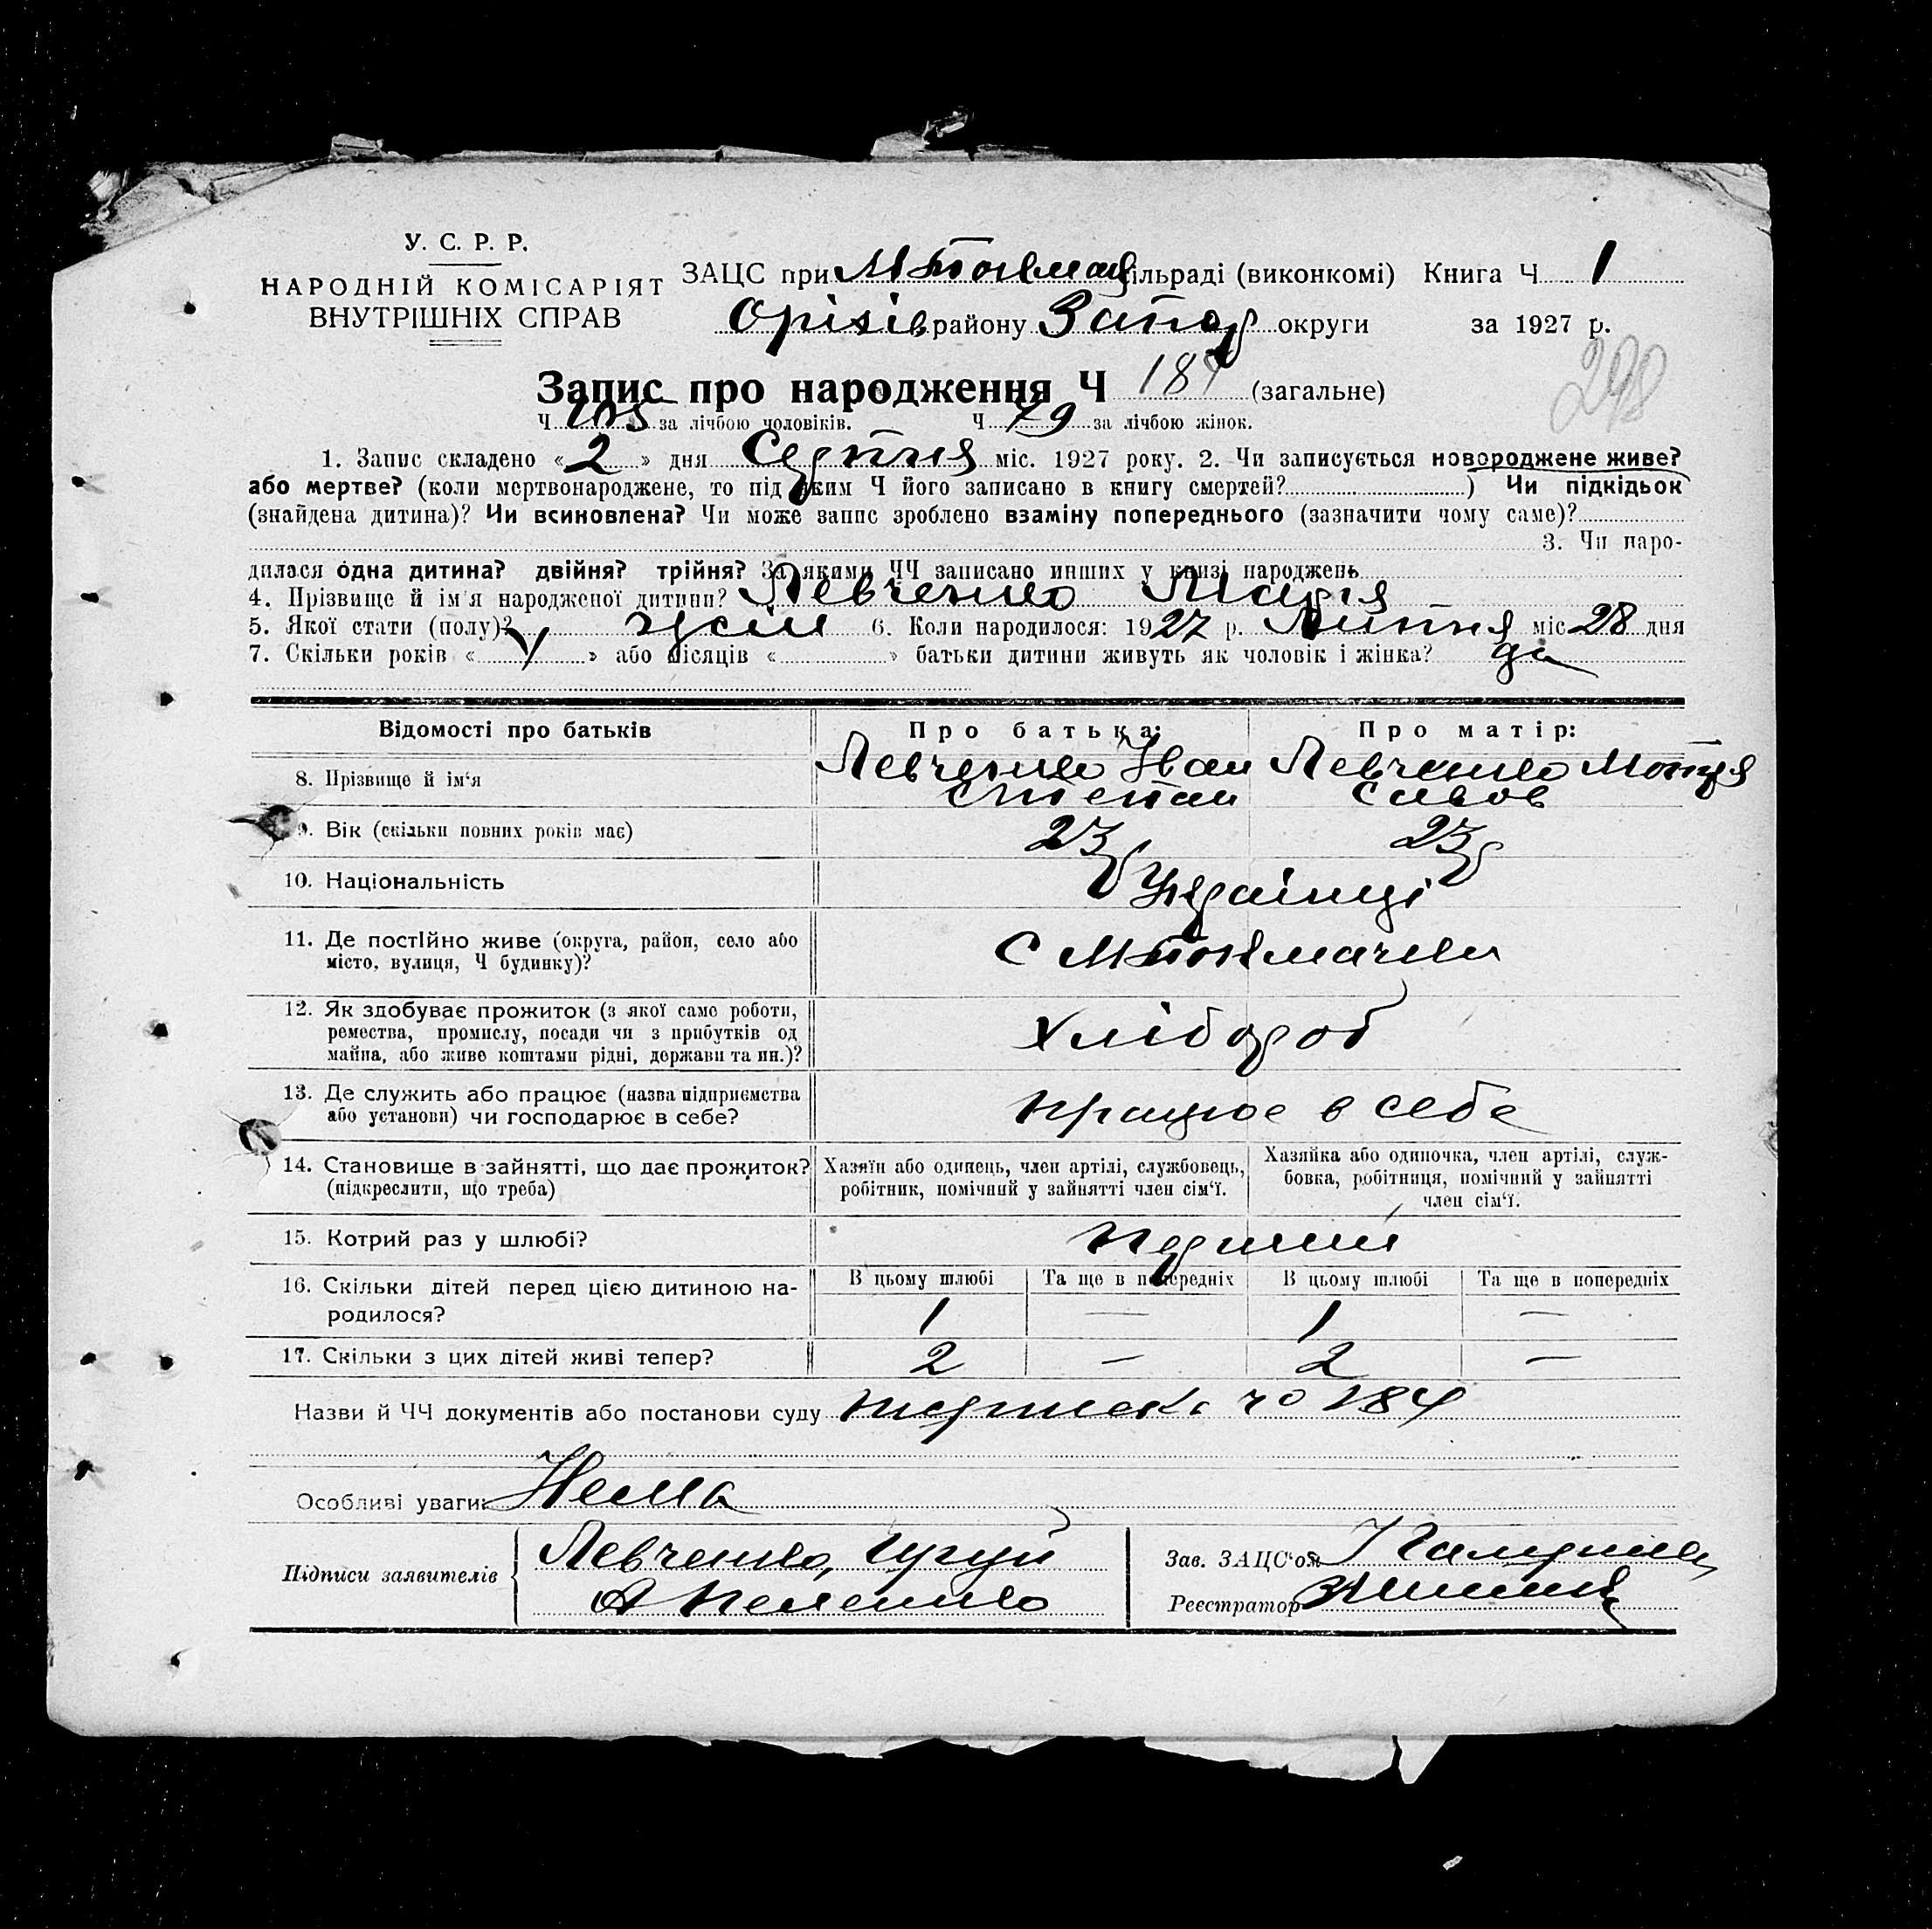 У. С. Р. Р.
НАРОДНІЙ КОМІСАРІЯТ
ВНУТРІШНІХ СПРАВ
ЗАЦС при М Токмац сільраді (виконкомі) Книга Ч 1
Оріхів району Запор округи за 1927 р.
298
Запис про народження Ч 184 (загальне)
Ч 105 за лічбою чоловіків. Ч 79 за лічбою жінок.
1. Запис складено « 2 » дня Серпня міс. 1927 року. 2. Чи записується новороджене живе?
або мертве? (коли мертвонароджене, то під яким Ч його записано в книгу смертей? ) Чи підкідьок
(знайдена дитина)? Чи всиновлена? Чи може запис зроблено взаміну попереднього (зазначити чому саме)?
3. Чи наро-
дилася одна дитина? двійня? трійня? За якими ЧЧ записано инших у книзі народжень
4. Прізвище й ім'я народженої дитини? Левченко Марія
5. Якої стати (полу)? жіси 6. Коли народилося: 1927 р. Липня міс 28 дня
7. Скільки років « » або місяців « » батьки дитини живуть як чоловік і жінка? да
Відомості про батьків Про батька: Про матір:
8. Прізвище й ім'я Левченко Іван Левченко Мотря
Степан Савов
9. Вік (скільки повних років має) 23 23
10. Національність Українці
11. Де постійно живе (округа, район, село або
місто, вулиця, Ч будинку)? С М Токмачка
12. Як здобуває прожиток (з якої само роботи,
ремества, промислу, посади чи з прибутків од
майна, або живе коштами рідні, держави та ин.)? Хлібороб
13. Де служить або працює (назва підприємства
або установи) чи господарює в себе? працює в себе
14. Становище в зайнятті, що дає прожиток?
(підкреслити, що треба)
Хазяїн або одинець, член артілі, службовець,
робітник, помічний у зайнятті член сім'ї.
Хазяйка або одиночка, член артілі, служ-
бовка, робітниця, помічний у зайнятті
член сім'ї.
15. Котрий раз у шлюбі? Перший
В цьому шлюбі Та ще в попередніх В цьому шлюбі Та ще в попередніх
16. Скільки дітей перед цією дитиною на-
родилося? 1 — 1 —
17. Скільки з цих дітей живі тепер? 2 — 2 —
Назви й ЧЧ документів або постанови суду 184
Особливі уваги: Нема
Підписи заявителів Левченко,
Зав. ЗАЦС'ом
Реєстратор